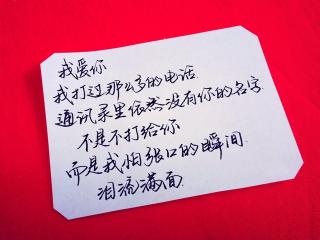 我爱你
我打过那么多的电话
通讯录里依然没有你的名字
不是不打给你
而是我怕张口的瞬间
泪流满面